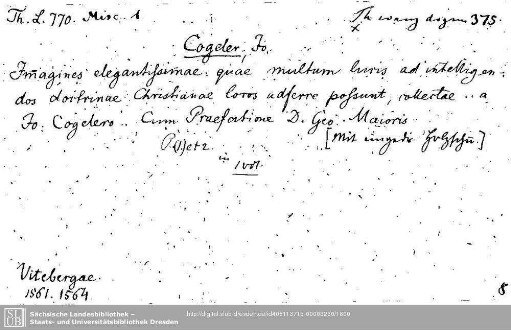 Th. L. 770. Misc. 1
Th evang dogm 375.
Cogeler, Jo.
Imagines elegantissimae. quae multum lucis ad intelligen-
dos doctrinae Christianae locos adferre possunt, collectae .. a
Jo. Cogelero.. Cum Praefatione D. Geo. Maioris
P.(1) et 2. [Mit eingedr. Holzschn.]
in 1 vol.
Vitebergae.
1561. 1564
8
Sächsische Landesbibliothek –
Staats- und Universitätsbibliothek Dresden